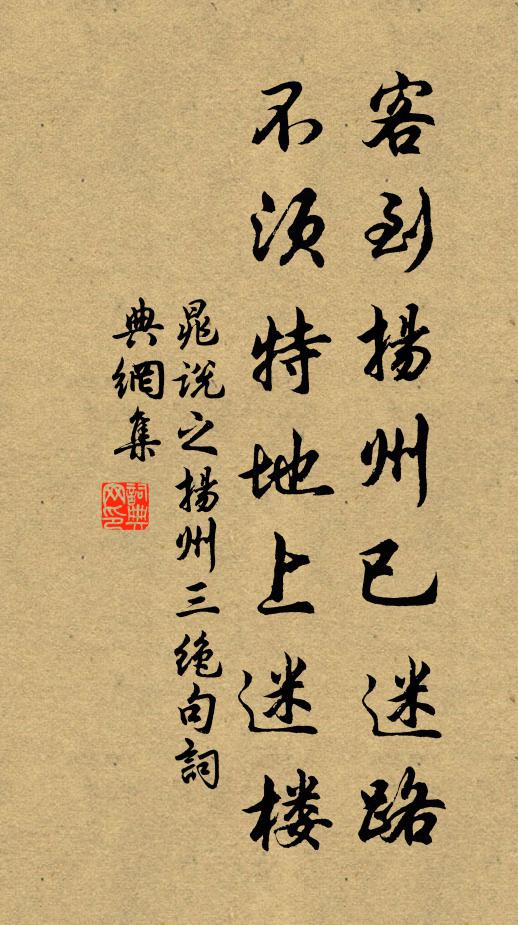 客到揚州已迷路
不須特地上迷楼
晁说之揚州三绝句詞
典網集
詞典网印